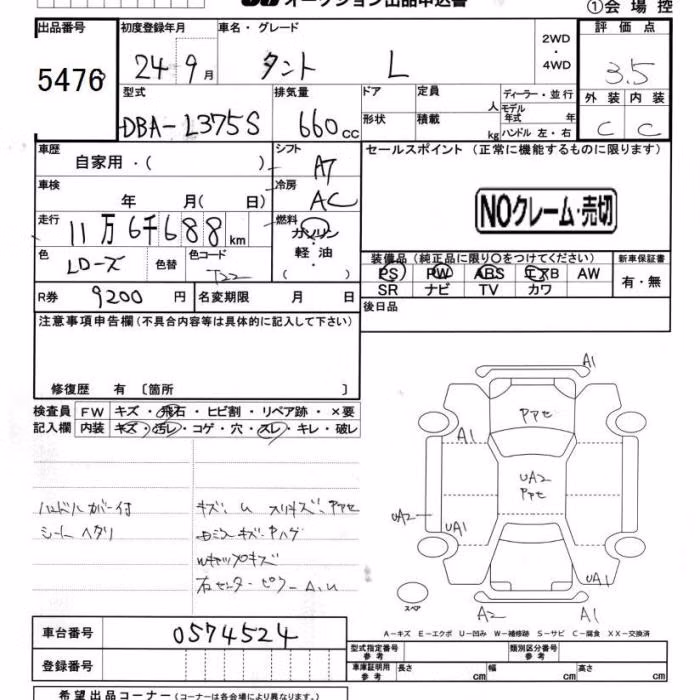 オークション出品申込書
①会場控
出品番号
5476
初度登録年月
24 9月
車名・グレード
タント L
2WD
・
4WD
評価点
3.5
外装 内装
C C
型式
DBA-L375S
排気量
660cc
ドア
形状
定員
人
積載
kg
ディーラー・並行
モデル年式 年
ハンドル 左・右
車歴
自家用・( )
シフト
AT
車検
年 月( 日)
冷房
AC
走行
11万6千688km
燃料
ガソリン
軽油
( )
色
Lローズ
色替
色コード
T22
R券
9200円
名変期限 月 日
セールスポイント (正常に機能するものに限ります)
NOクレーム・売切
装備品(純正品に限り○をつけてください)
新車保証書
PS PW ABS エアB AW
有・無
SR ナビ TV カワ
後日品
注意事項申告欄(不具合内容等は具体的に記入して下さい)
修復歴 有 〔箇所 〕
検査員記入欄
FW キズ・飛石・ヒビ割・リペア跡・×要
内装 キズ・汚レ・コゲ・穴・スレ・キレ・破レ
ハンドルカバー付
シートヘタリ
キズ、U スリキズ、PPセ
Wキャップキズ
右センターピラーA,U
A1
PPセ
A1
UA2
PPセ
UA2
UA1
UA1
スペア
A2
A1
A-キズ E-エクボ U-凹み W-補修跡 S-サビ C-腐食 XX-交換済
車台番号
0574524
登録番号
型式指定番号 参考
類別区分番号 参考
車庫証明用 参考
長さ cm 幅 cm 高さ cm
希望出品コーナー(コーナーは各会場により異なります。)